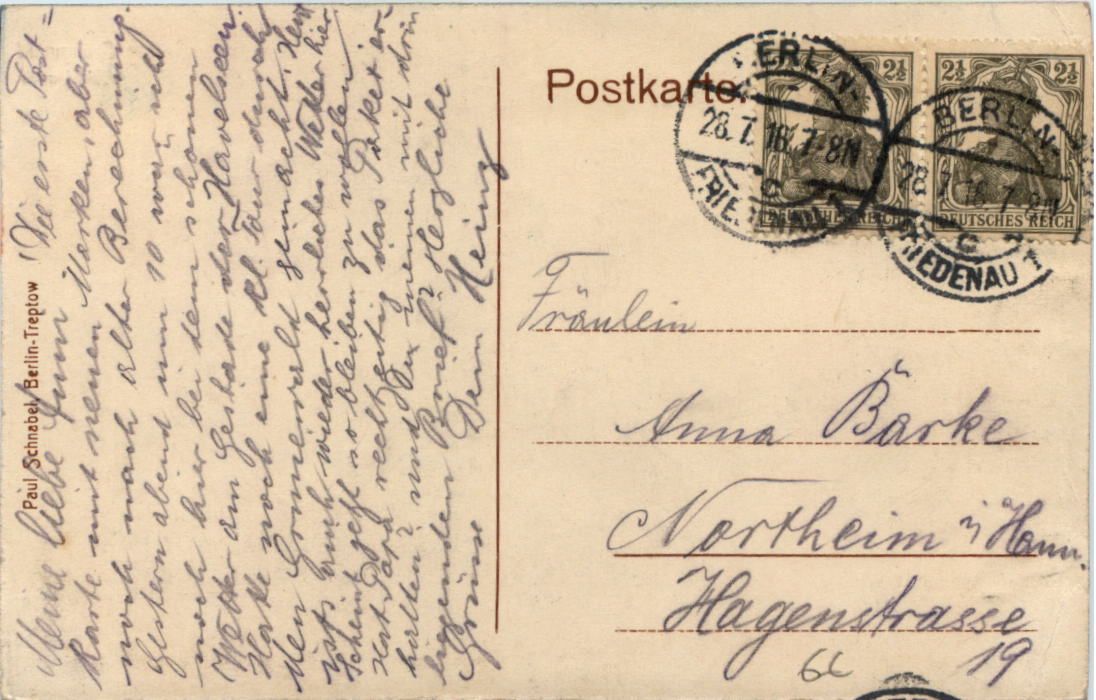 Postkarte
BERLIN-
28.7.18.7-8N
FRIEDENAU
2½
2½ 2½
DEUTSCHES REICH
DEUTSCHES REICH
BERLIN-
28.7.18.7-8N
FRIEDENAU 1
Paul Schnabel, Berlin-Treptow
Meine liebe Ann! Die erste Post=
karte mit neuen Marken, aber
noch nach alter Berechnung.
Gestern abend um 10 war ich
noch hier bei dem schönen
Wetter am Gestade der Havelseen.
Hatte noch eine kl. Tour durch
den Grunewald gemacht. Heut
ists auch wieder herrliches Wetter hier,
scheint jetzt so bleiben zu wollen.
Hat Papa rechtzeitig das Paket er-
halten? und Du meinen mit drin
liegenden Brief? Herzliche
Grüsse Dein Heinz
Fräulein
Anna Barke
Northeim i/Hann.
Hagenstrasse
19